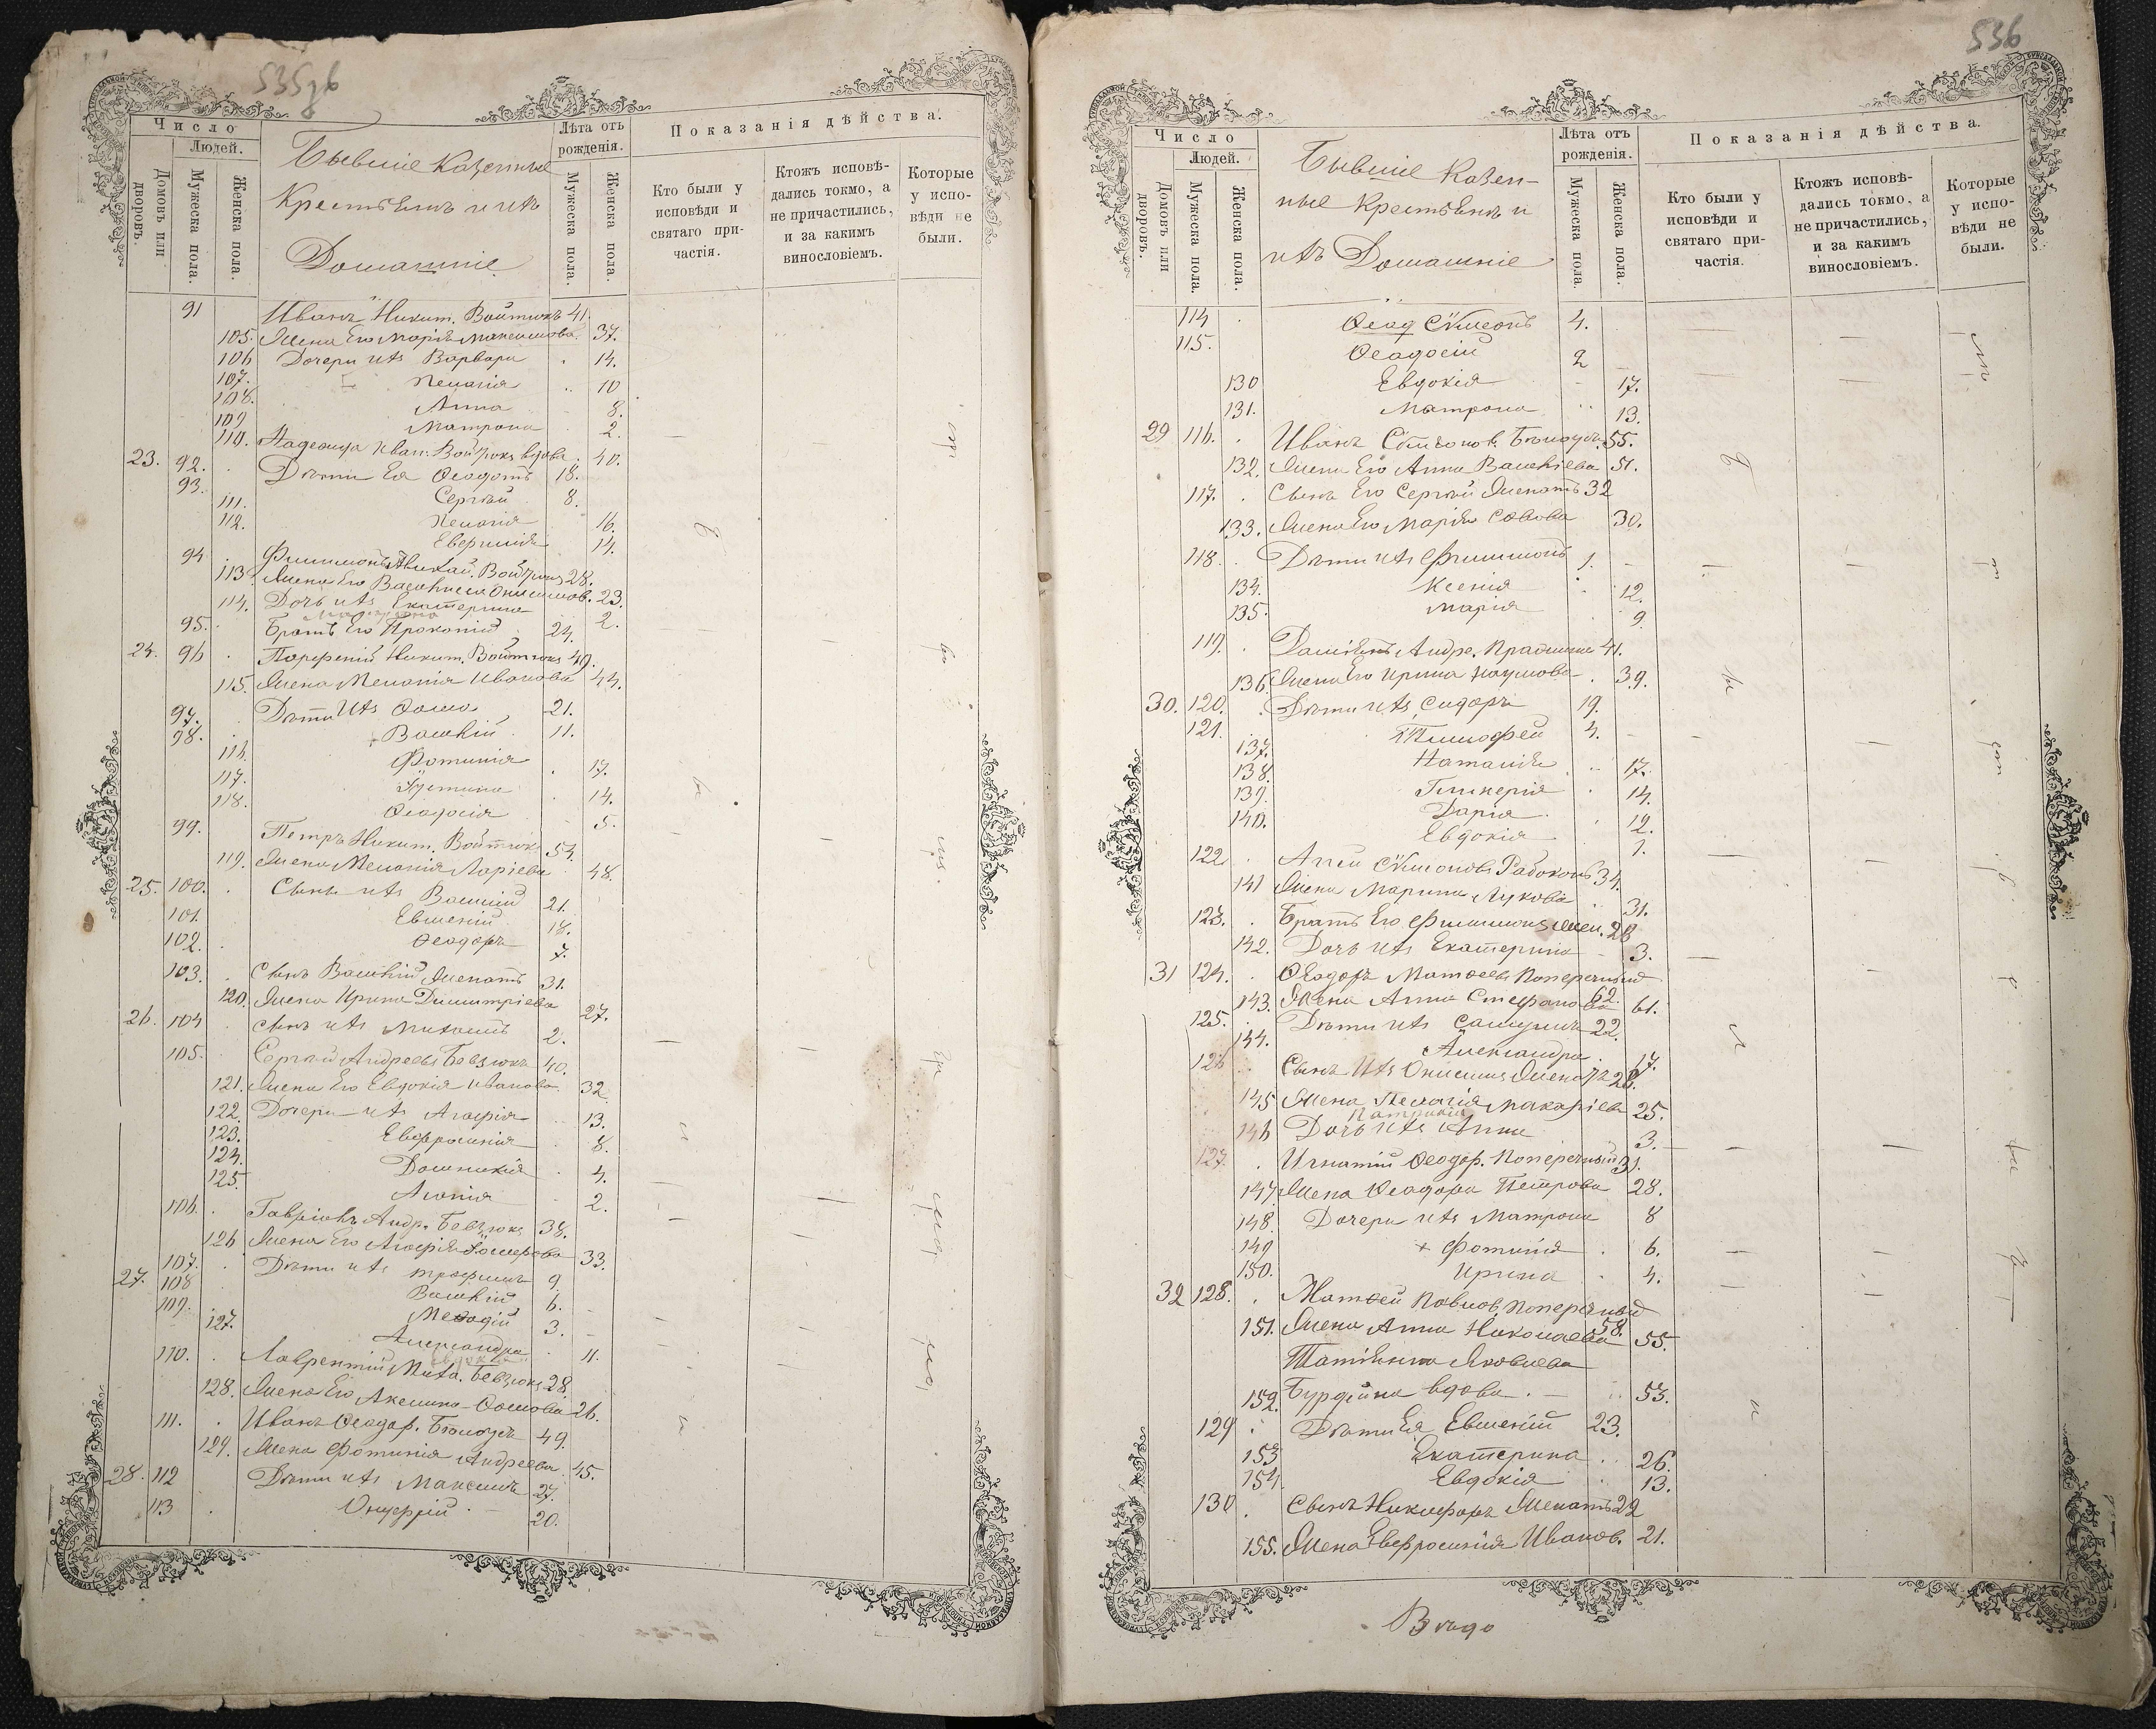 535
Число
Людей.
Домовъ или дворовъ.
Мужеска пола.
Женска пола.
Бывшіе Казенные
Крестьянъ и ихъ
Домашніе
Лѣта отъ рожденія.
Мужеска пола.
Женска пола.
Показанія дѣйства.
Кто были у исповѣди и святаго причастія.
Ктожъ исповѣдались токмо, а не причастились, и за какимъ винословіемъ.
Которые у исповѣди не были.
91 Иванъ Никит. Войтюкъ 41.
105. Жена Его Марія Максимова. 37.
106 Дочери ихъ Варвара 14.
107. Пелагія 10
108. Анна 8.
109 Матрона 2.
110. Надежда Иван. Войтюкъ вдова. 40.
23. 92. Дѣти Ея Ѳеодотъ 18.
93. Сергѣй 8.
111. Пелагія 16.
112. Евфимія 14.
94 Филимонъ Войтюкъ 28.
113 Жена Его Василиса Онисимов. 23.
114. Дочь ихъ Екатерина 2.
95. Братъ Его Прокопій 24.
24. 96 Парфеній Никит. Войтюкъ 49.
115. Жена Меланія Иванова 44.
97. Дѣти Ихъ Ѳома 21.
98. Василій 11.
116. Фотинія 17.
117. Іустина 14.
118. Ѳеодосія 5.
99. Петръ Никит. Войтюкъ 54.
119. Жена Меланія Ларіева 48.
25. 100. Сынъ ихъ Василій 21.
101. Евменій 18.
102. Ѳеодоръ 7.
103. Сынъ Василій Женатъ 31.
120. Жена Ирина Димитріева 27.
26. 104 Сынъ ихъ Михаилъ 2.
105. Сергѣй Андреевъ Бевзюкъ 40.
121. Жена Его Евдокія Иванова 32.
122. Дочери ихъ Агафія 13.
123. Евфросинія 8.
124. Домникія 4.
125. Агапія 2.
106. Гавріилъ Андр. Бевзюкъ 38.
126 Жена Его Агафія 33.
107. Дѣти ихъ Трофимъ 9.
27. 108 Василій 6.
109. Меѳодій 3.
127. Александра 11.
110. Лаврентій Миха. Бевзюкъ 28.
128. Жена Его Акилина Ѳомова 26.
111. Иванъ Ѳеодор. Бѣлоусъ 49.
129. Жена Фотинія Андреева 45.
28. 112 Дѣти ихъ Максимъ 27.
113 Онуфрій 20.
536
Число
Людей.
Домовъ или дворовъ.
Мужеска пола.
Женска пола.
Бывшіе Казен-
ные Крестьянъ и
ихъ Домашніе
Лѣта отъ рожденія.
Мужеска пола.
Женска пола.
Показанія дѣйства.
Кто были у исповѣди и святаго причастія.
Ктожъ исповѣдались токмо, а не причастились, и за какимъ винословіемъ.
Которые у исповѣди не были.
114 Ѳеод Сѵмеонъ 4.
115. Ѳеодосій 2
130 Евдокія 17.
131. Матрона 13.
29 116. Иванъ Бѣлоусъ 55.
132. Жена Его Анна Василіева 51.
117. Сынъ Его Сергѣй Женатъ 32
133. Жена Его Марія Савова 30.
118. Дѣти ихъ Филимонъ 1.
134. Ксенія 12.
135. Марія 9
119. Даміанъ Андре. 41.
136. Жена Его Ирина Наумова 39.
30. 120. Дѣти ихъ Сидоръ 19.
121. Тимофей 4.
137. Наталія 17.
138. Гликерія 14.
139. Дарія 12.
140. Евдокія 1.
122 Сѵмеоновъ 34.
141 Жена Марина Лукова 31.
123. Братъ Его Филимонъ Жен. 28
142. Дочь ихъ Екатерина 3.
31 124. Ѳеодоръ Матѳеевъ Поперечный 62.
143. Жена Анна Стефанова 61.
125. Дѣти ихъ Самуилъ 22.
144. Александра 17.
126 Сынъ Ихъ Онисимъ Женатъ 28.
145 Жена Пелагія Макаріева 25.
146 Дочь ихъ Анна 3.
127. Игнатій Ѳеодор. Поперечный 31.
147. Жена Ѳеодора Петрова 28.
148. Дочери ихъ Матрона 8
149 Фотинія 6.
150. Ирина 4.
32 128. Матѳей Павлов. Поперечный 58.
151. Жена Анна Николаева 55.
Татіанна Яковлева
152. Бурдейна вдова. 53.
129 Дѣти Ея Евменій 23.
153 Екатерина 26.
154. Евдокія 13.
130 Сынъ Никифоръ Женатъ 22
155. Жена Евфросинія Иванов. 21.